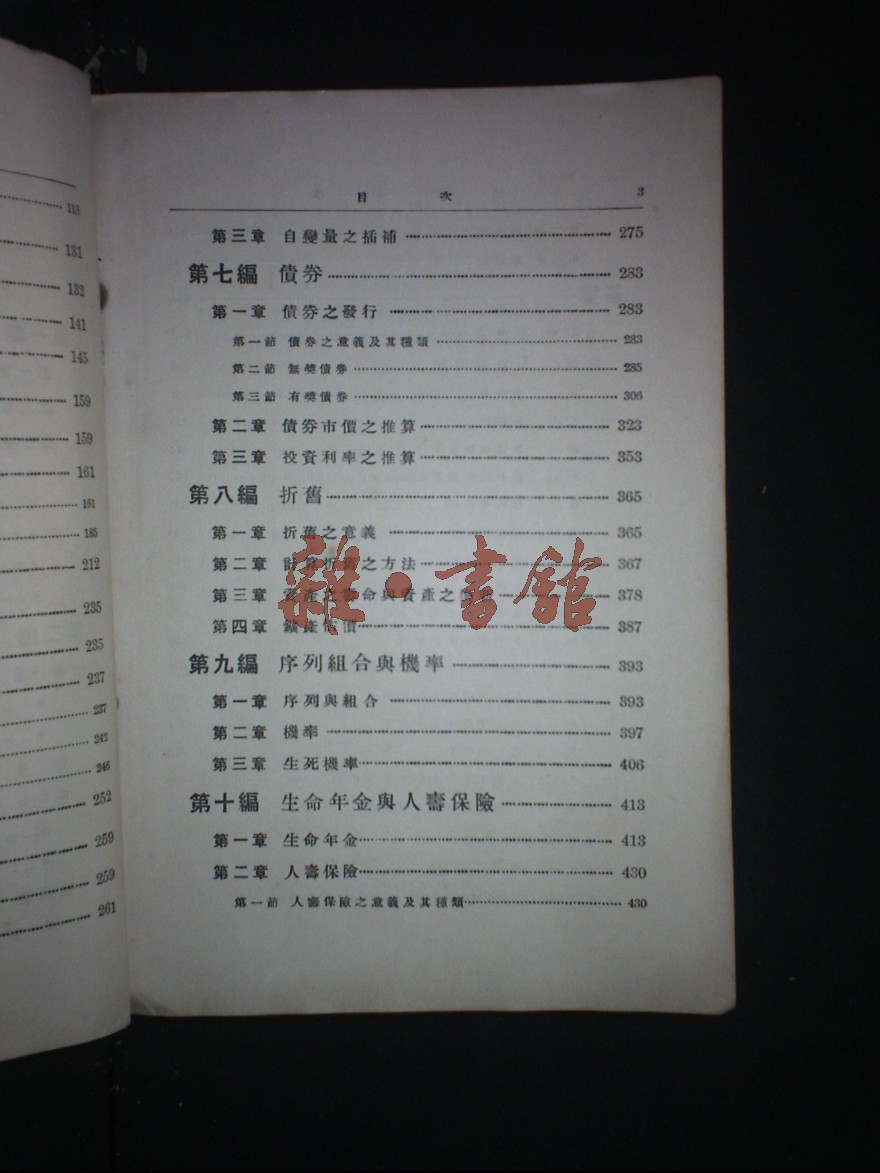 118
131
132
141
145
159
159
161
161
185
212
235
235
237
237
242
246
252
259
259
261
目 次 3
第三章 自變量之插補 275
第七編 債券 283
第一章 債券之發行 283
第一節 債券之意義及其種類 283
第二節 無獎債券 285
第三節 有獎債券 306
第二章 債券市價之推算 323
第三章 投資利率之推算 353
第八編 折舊 365
第一章 折舊之意義 365
第二章 計算折舊之方法 367
第三章 資產之壽命與資產之 378
第四章 鑛產估價 387
第九編 序列組合與機率 393
第一章 序列與組合 393
第二章 機率 397
第三章 生死機率 406
第十編 生命年金與人壽保險 413
第一章 生命年金 413
第二章 人壽保險 430
第一節 人壽保險之意義及其種類 430
雜·書館